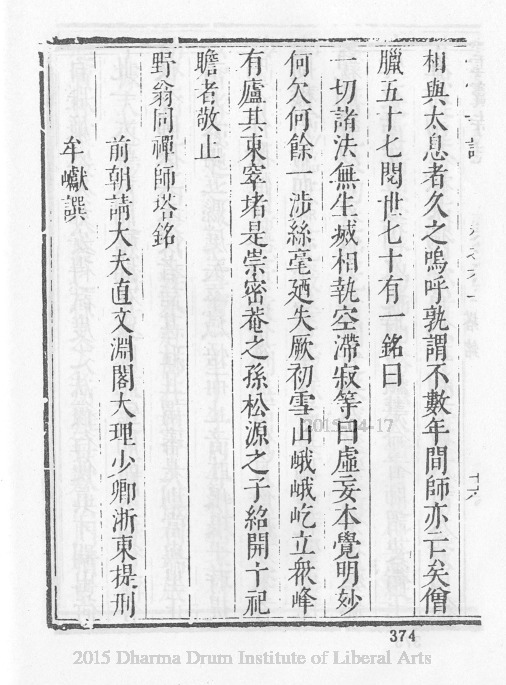 相與太息者久之嗚呼孰謂不數年間師亦亡矣僧
臘五十七閱世七十有一銘曰
一切諸法無生滅相執空滯寂等曰虛妄本覺明妙
何欠何餘一涉絲毫廼失厥初雪山峨峨屹立衆峰
有廬其東窣堵是崇密菴之孫松源之子紹開十祀
瞻者敬止
野翁同禪師塔銘
前朝請大夫直文淵閣大理少卿浙東提刑
牟巘譔
十六
2015-04-17
374
2015 Dharma Drum Institute of Liberal Arts